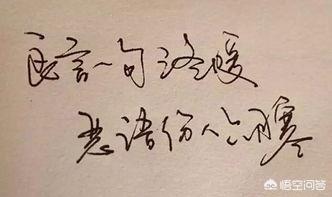 良言一句三冬暖
恶语伤人六月寒
悟空问答